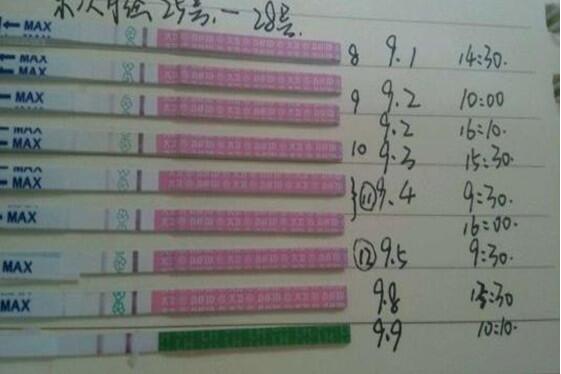 末次月经25号.一28号.
← MAX 8 9.1 14:30.
← MAX
← MAX 9 9.2 10:00
9.2 16:10.
MAX 10 9.3 15:30.
← MAX ⑪ 9.4 9:30.
← MAX 16:00.
MAX ⑫ 9.5 9:30.
MAX 9.8 15:30
9.9 10:10.